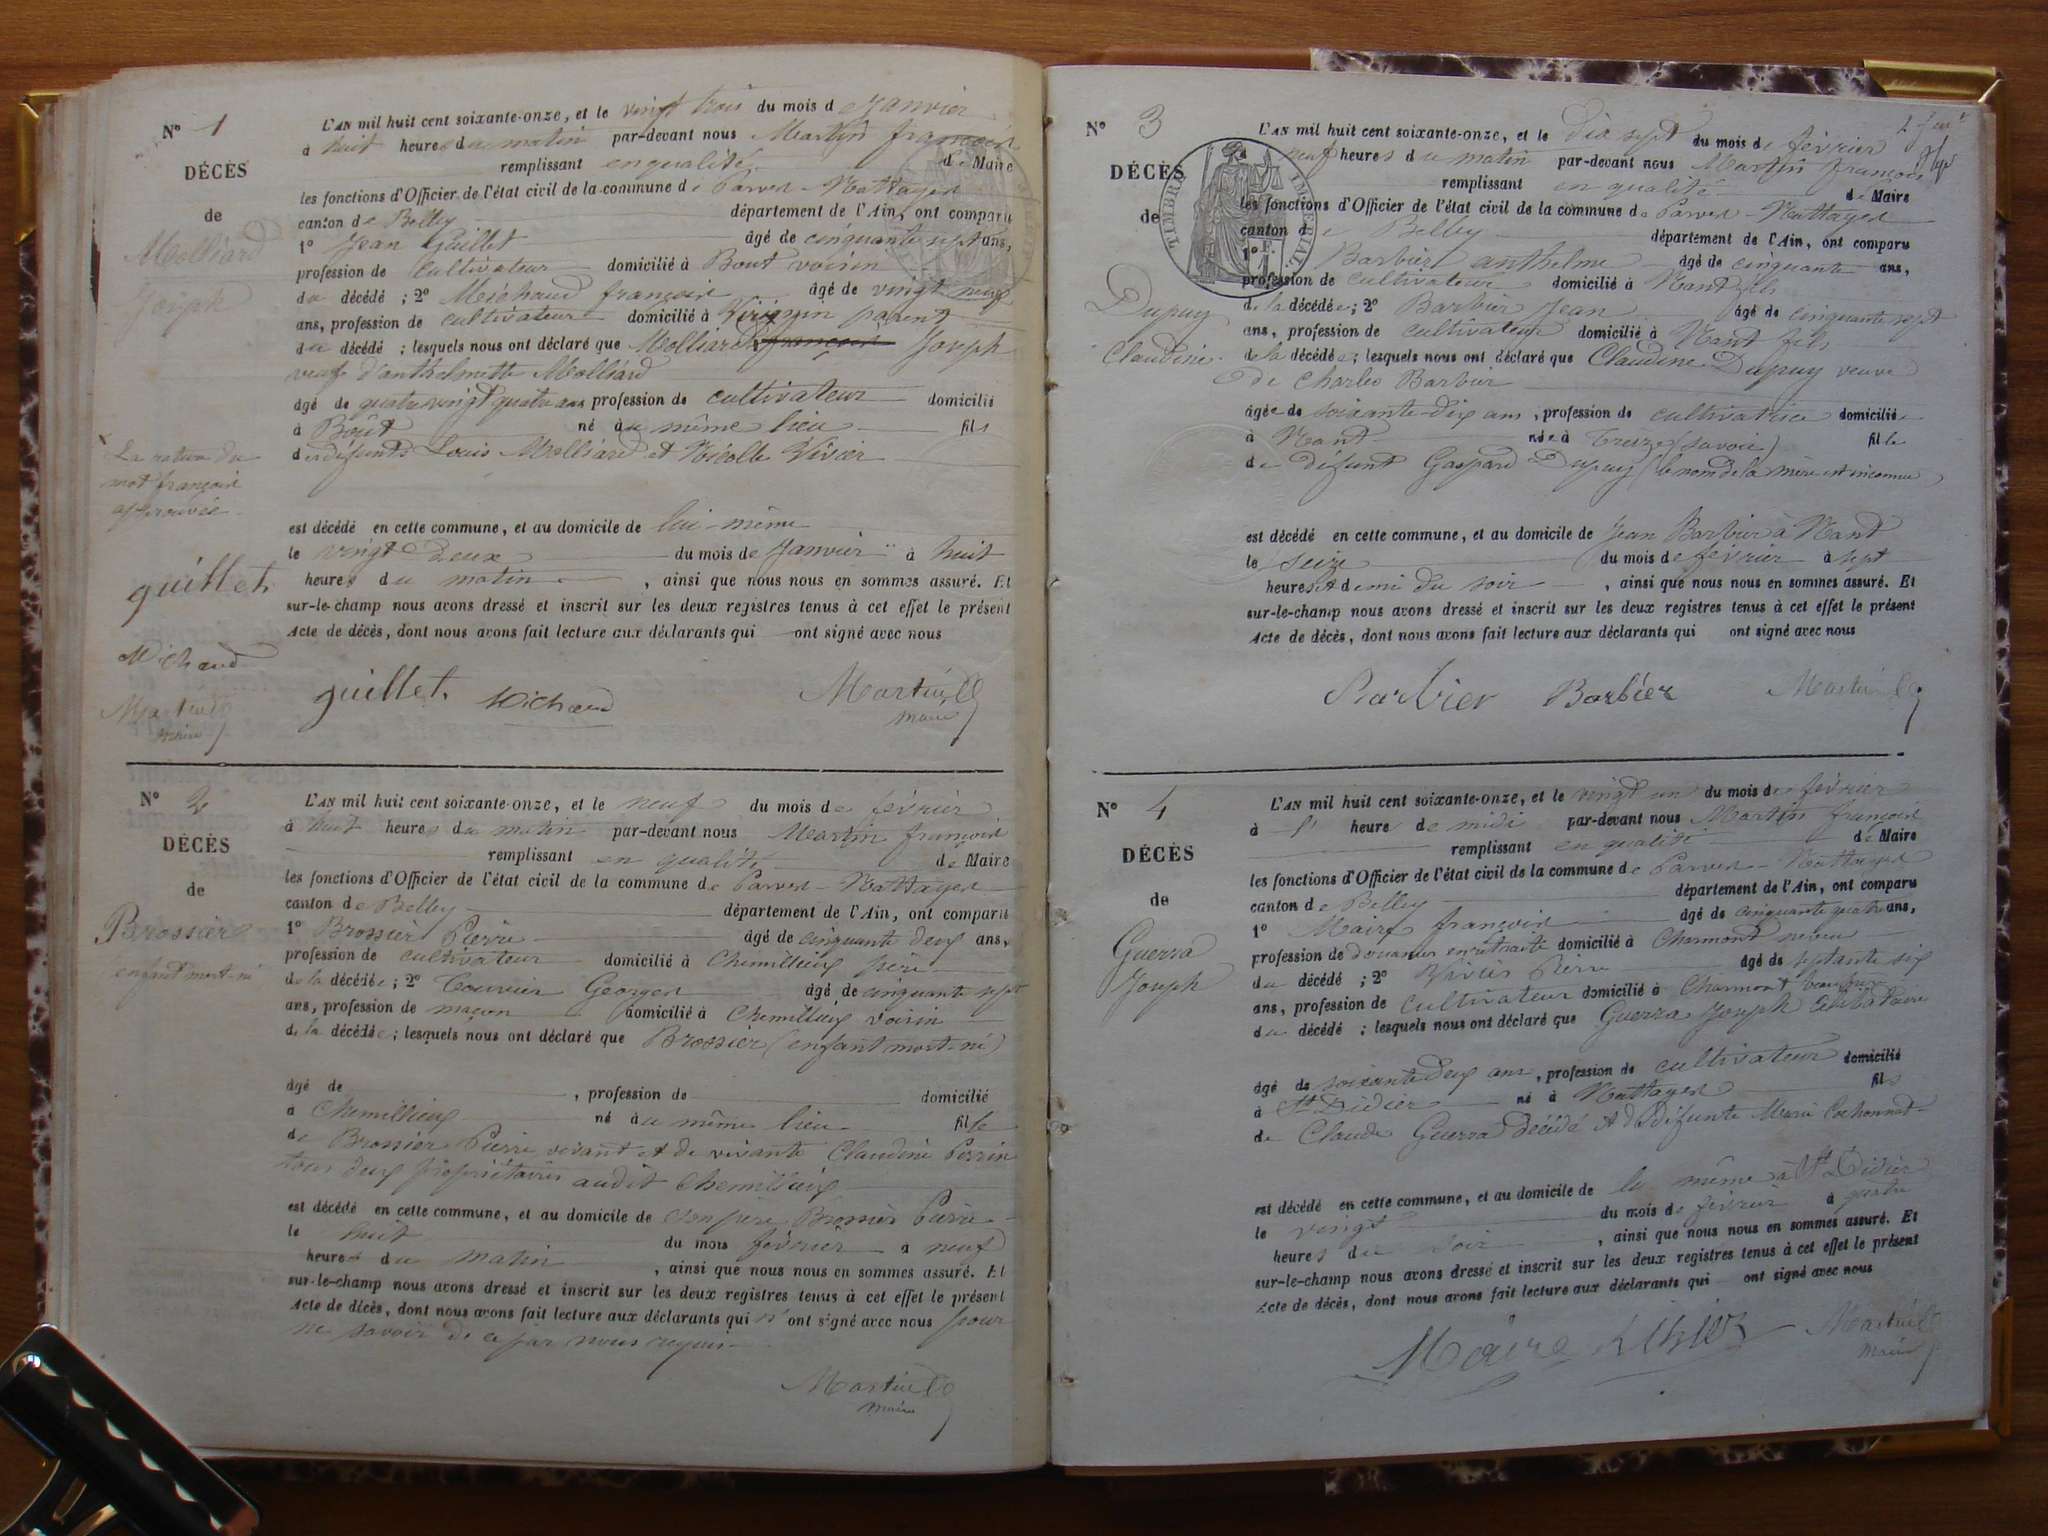 N° 1
DÉCÈS
de
Molliard
Joseph
L'AN mil huit cent soixante-onze, et le vingt trois du mois de Janvier
à huit heures du matin par-devant nous Martin françois
remplissant en qualité de Maire
les fonctions d'Officier de l'état civil de la commune de Parves-Nattages
canton de Belley département de l'Ain, ont comparu
1° Jean Guillet âgé de cinquante sept ans,
profession de cultivateur domicilié à Bout voisin
du décédé ; 2° Michaud françois âgé de vingt neuf
ans, profession de cultivateur domicilié à Virignin parent
du décédé ; lesquels nous ont déclaré que Molliard françois Joseph
veuf d'anthelmette Molliard
âgé de quatre vingt quatre ans profession de cultivateur domicilié
à Bout né au même lieu fils
des défunts Louis Molliard et Nicolle Vivier
La rature du
mot françois
approuvée
est décédé en cette commune, et au domicile de lui-même
le vingt deux du mois de Janvier à huit
heures du matin, ainsi que nous nous en sommes assuré. Et
sur-le-champ nous avons dressé et inscrit sur les deux registres tenus à cet effet le présent
Acte de décès, dont nous avons fait lecture aux déclarants qui ont signé avec nous
guillet
Michaud
Martin
maire
guillet Michaud Martin
maire
N° 2
DÉCÈS
de
Brossier
enfant mort-né
L'AN mil huit cent soixante-onze, et le neuf du mois de février
à huit heures du matin par-devant nous Martin françois
remplissant en qualité de Maire
les fonctions d'Officier de l'état civil de la commune de Parves-Nattages
canton de Belley département de l'Ain, ont comparu
1° Brossier Pierre âgé de cinquante deux ans,
profession de cultivateur domicilié à Chemillieux père
de la décédée ; 2° Couvier Georges âgé de cinquante sept
ans, profession de maçon domicilié à Chemillieux voisin
de la décédée ; lesquels nous ont déclaré que Brossier (enfant mort-né)
âgé de , profession de domicilié
à Chemillieux né au même lieu fille
de Brossier Pierre vivant et de vivante Claudine Perrin
tous deux propriétaires audit Chemillieux
est décédé en cette commune, et au domicile de son père Brossier Pierre
le huit du mois février à neuf
heures du matin, ainsi que nous nous en sommes assuré. Et
sur-le-champ nous avons dressé et inscrit sur les deux registres tenus à cet effet le présent
Acte de décès, dont nous avons fait lecture aux déclarants qui n'ont signé avec nous pour
ne savoir de ce par nous requis
Martin
maire
N° 3
DÉCÈS
de
Dupuy
Claudine
TIMBRE IMPERIAL
L'AN mil huit cent soixante-onze, et le dix sept du mois de février
neuf heures du matin par-devant nous Martin françois
remplissant en qualité de Maire
les fonctions d'Officier de l'état civil de la commune de Parves-Nattages
canton de Belley département de l'Ain, ont comparu
1° Barbier anthelme âgé de cinquante ans,
profession de cultivateur domicilié à Nant fils
de la décédée ; 2° Barbier Jean âgé de cinquante sept
ans, profession de cultivateur domicilié à Nant fils
de la décédée ; lesquels nous ont déclaré que Claudine Dupuy veuve
de Charles Barbier
âgée de soixante-dix ans, profession de cultivatrice domiciliée
à Nant née à Treize (Savoie) fille
de défunt Gaspard Dupuy (le nom de la mère est inconnu
est décédé en cette commune, et au domicile de Jean Barbier à Nant
le seize du mois de février à sept
heures et demi du soir, ainsi que nous nous en sommes assuré. Et
sur-le-champ nous avons dressé et inscrit sur les deux registres tenus à cet effet le présent
Acte de décès, dont nous avons fait lecture aux déclarants qui ont signé avec nous
Barbier Barbier Martin
N° 4
DÉCÈS
de
Guerra
Joseph
L'AN mil huit cent soixante-onze, et le vingt un du mois de février
à l' heure de midi par-devant nous Martin françois
remplissant en qualité de Maire
les fonctions d'Officier de l'état civil de la commune de Parves-Nattages
canton de Belley département de l'Ain, ont comparu
1° Maire françois âgé de cinquante quatre ans,
profession de douanier en retraite domicilié à Charmont neveu
du décédé ; 2° Pierre âgé de septante six
ans, profession de cultivateur domicilié à Charmont beau frère
du décédé ; lesquels nous ont déclaré que Guerra Joseph Célibataire
âgé de soixante deux ans, profession de cultivateur domicilié
à St Didier né à Nattages fils
de Claude Guerra décédé et de Défunte Marie Cochonnat
est décédé en cette commune, et au domicile de lui même à St Didier
le vingt du mois de février à quatre
heures du soir, ainsi que nous nous en sommes assuré. Et
sur-le-champ nous avons dressé et inscrit sur les deux registres tenus à cet effet le présent
Acte de décès, dont nous avons fait lecture aux déclarants qui ont signé avec nous
Maire Martin
maire